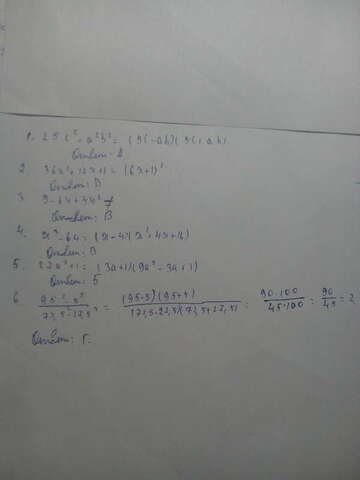 1. 25c² - a²b² = (5c - ab)(5c + ab)
Ответ: A
2. 36x² + 12x + 1 = (6x+1)²
Ответ: D
3.
Ответ: B
4. x³ - 64 = (x - 4)(x² + 4x + 16)
Ответ: B
5. 27a³ + 1 = (3a+1)(9a² - 3a + 1)
Ответ: Б
6. (95² - 5²)/(72,5² - 27,5²) = (95-5)(95+5)/(72,5-27,5)(72,5+27,5) = 90·100/45·100 = 90/45 = 2
Ответ: Г.